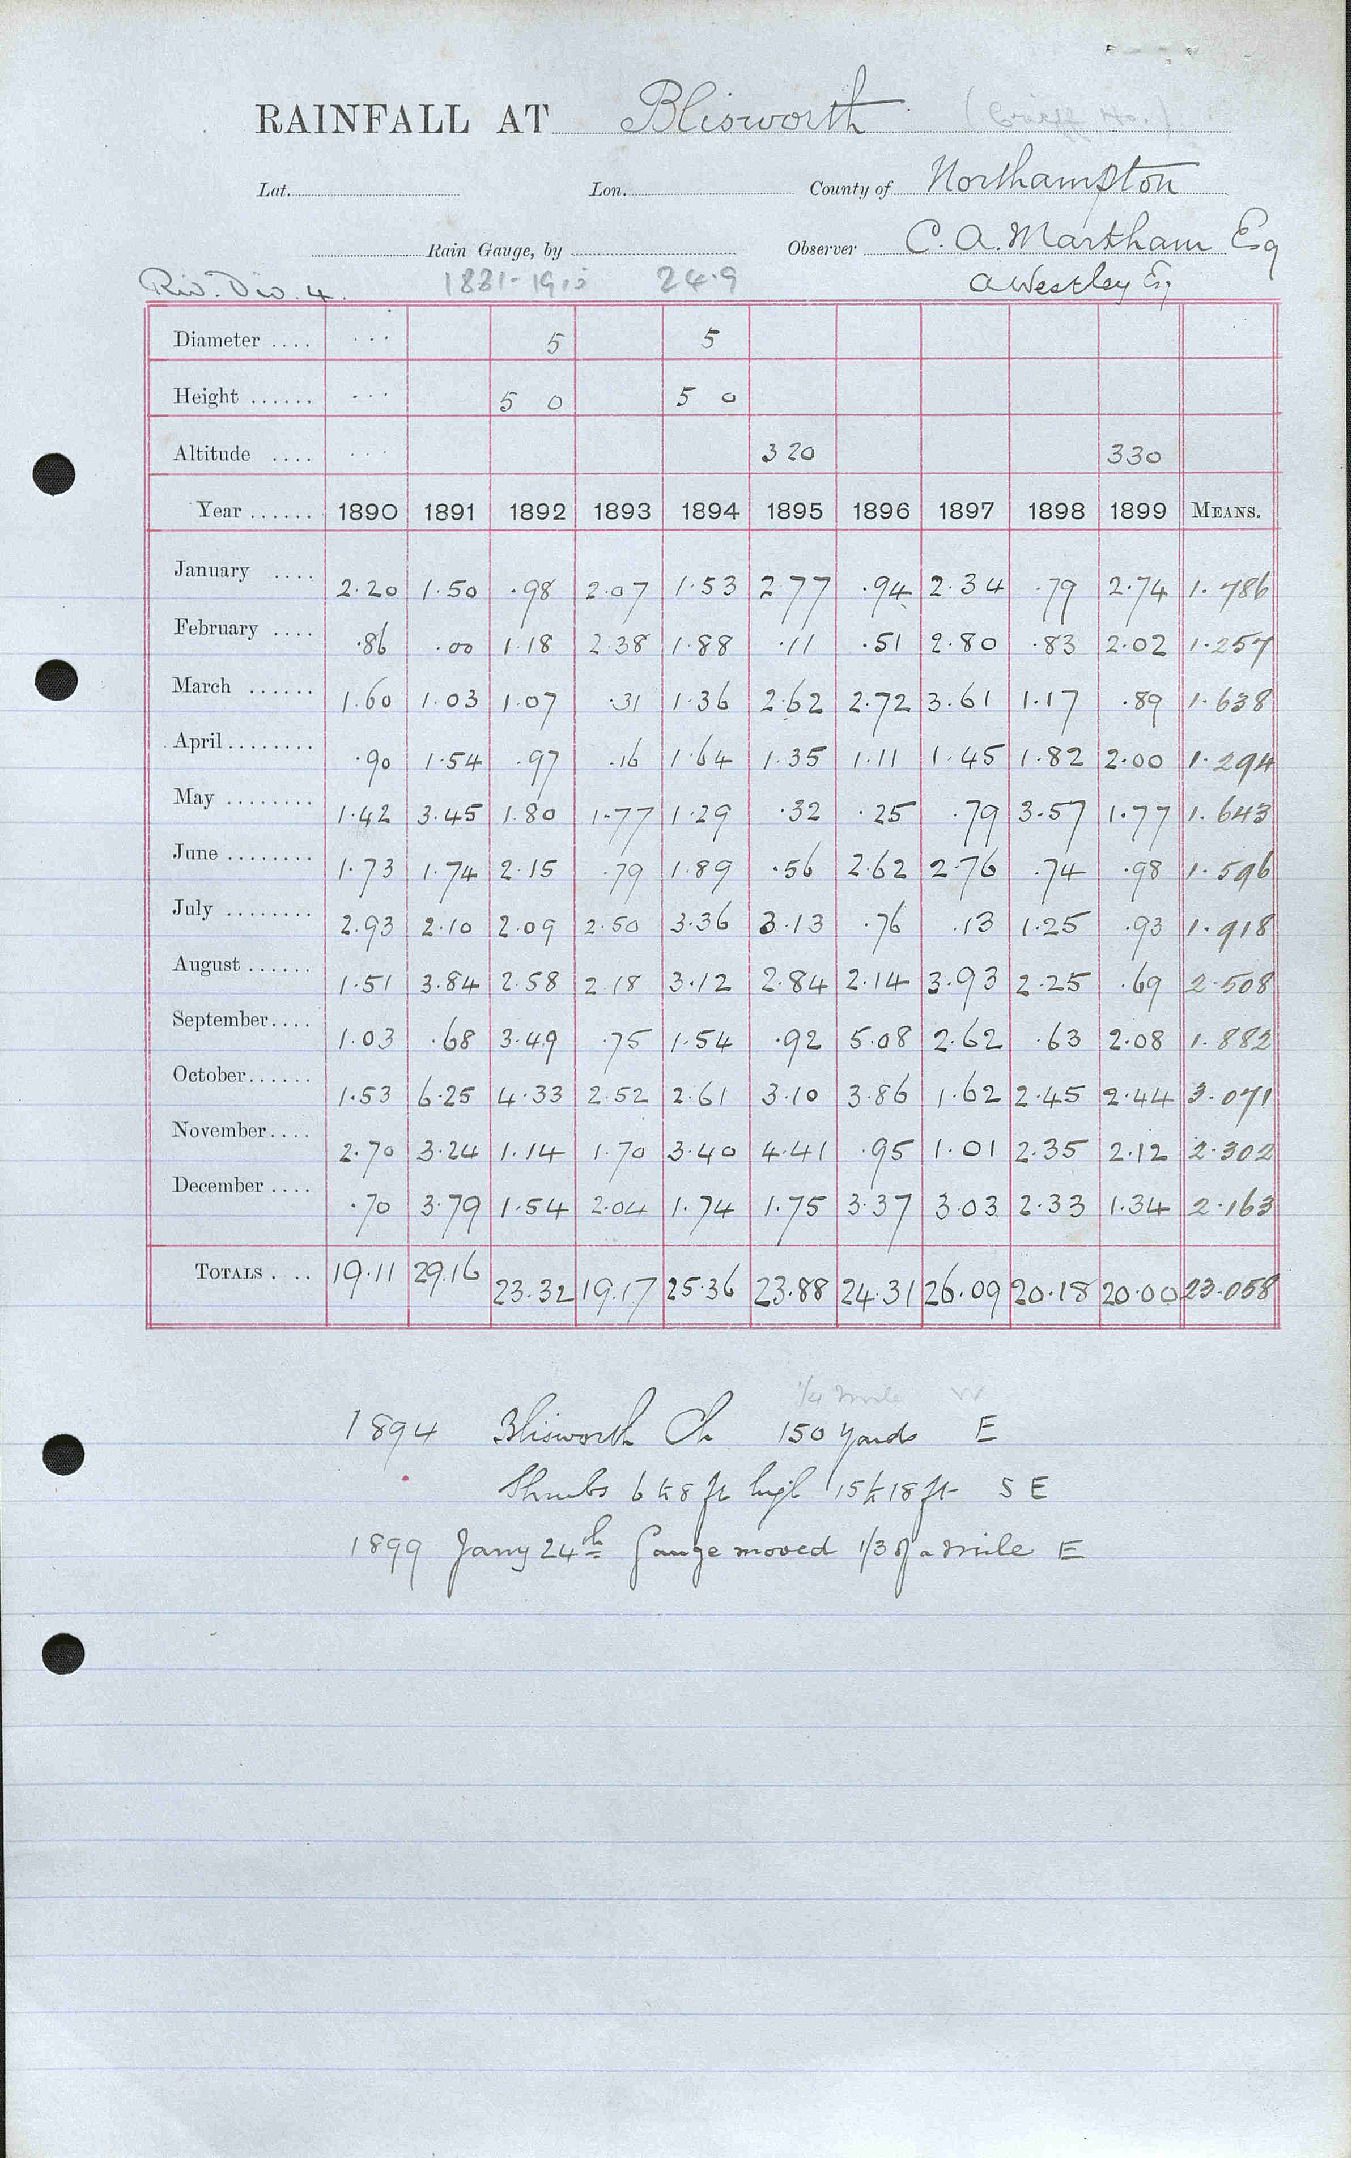 RAINFALL AT Blisworth
Lat. Lon. County of Northampton
Rain Gauge, by Observer C. A. Markham Esq
Riv. Div. 4. 24.9 A Westley Esq
Diameter .... ... 5 5
Height ...... ... 5 0 5 0
Altitude .... ... 320 330
Year ...... 1890 1891 1892 1893 1894 1895 1896 1897 1898 1899 MEANS.
January .... 2.20 1.50 .98 2.07 1.53 2.77 .94 2.34 .79 2.74 1.786
February .... .86 .00 1.18 2.38 1.88 .11 .51 2.80 .83 2.02 1.257
March ...... 1.60 1.03 1.07 .31 1.36 2.62 2.72 3.61 1.17 .89 1.638
April ........ .90 1.54 .97 .16 1.64 1.35 1.11 1.45 1.82 2.00 1.294
May ........ 1.42 3.45 1.80 1.77 1.29 .32 .25 .79 3.57 1.77 1.643
June ........ 1.73 1.74 2.15 .79 1.89 .56 2.62 2.76 .74 .98 1.596
July ........ 2.93 2.10 2.09 2.50 3.36 3.13 .76 .13 1.25 .93 1.918
August ...... 1.51 3.84 2.58 2.18 3.12 2.84 2.14 3.93 2.25 .69 2.508
September .... 1.03 .68 3.49 .75 1.54 .92 5.08 2.62 .63 2.08 1.882
October ...... 1.53 6.25 4.33 2.52 2.61 3.10 3.86 1.62 2.45 2.44 3.071
November .... 2.70 3.24 1.14 1.70 3.40 4.41 .95 1.01 2.35 2.12 2.302
December .... .70 3.79 1.54 2.04 1.74 1.75 3.37 3.03 2.33 1.34 2.163
TOTALS . .. 19.11 29.16 23.32 19.17 25.36 23.88 24.31 26.09 20.18 20.00 23.058
1/4 mile W
1894 Blisworth Ch 150 yards E
Shrubs 6 to 8 ft high 15 to 18 ft S E
1899 Jany 24th Gauge moved 1/3 of a mile E